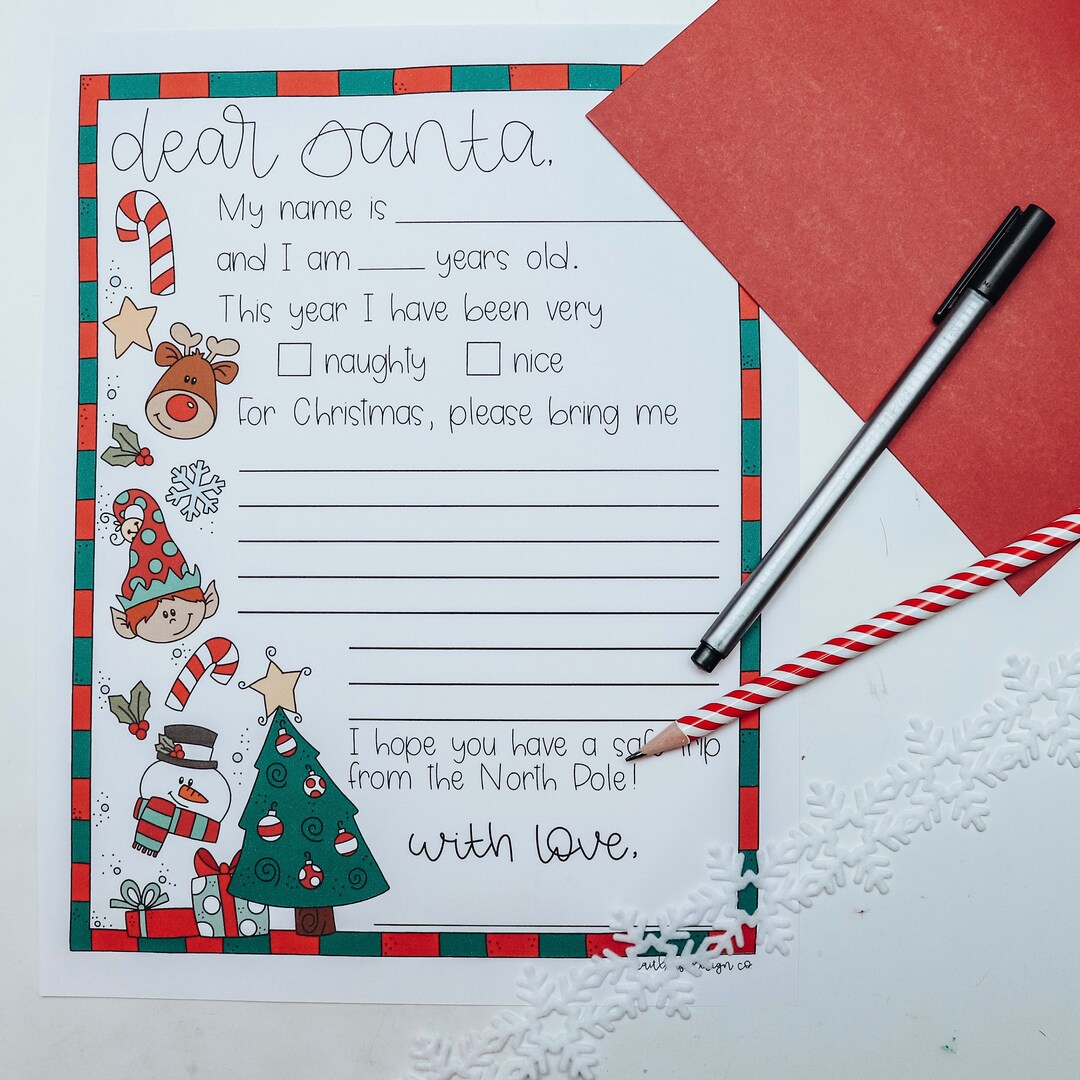 dear santa,
My name is
and I am ____ years old.
This year I have been very
naughty nice
For Christmas, please bring me
I hope you have a safe trip
from the North Pole!
with love,
co